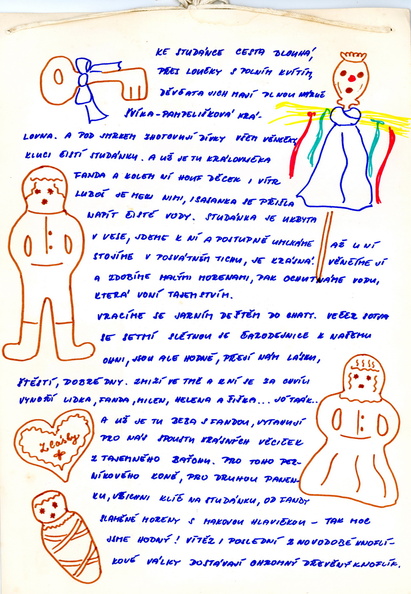 KE STUDÁNCE CESTA DLOUHÁ,
PŘES LOUČKY S POLNÍM KVÍTÍM,
DĚVČATA JICH MAJÍ PLNOU NÁRUČ
ŠIŠKA-PAMPELIŠKOVÁ KRÁ-
LOVNA. A POD SMRKEM ZHOTOVUJÍ DÍVKY VŠEM VĚNEČKY
KLUCI ČISTÍ STUDÁNKU. A UŽ JE TU KRÁLOVNIČKA
FANDA A KOLEM NÍ HOUF DĚCEK I VÍTR
LUBOŠ JE MEZI NIMI, I SASANKA SE PŘIŠLA
NAPÍT ČISTÉ VODY. STUDÁNKA JE UKRYTA
V LESE, JDEME K NÍ A POSTUPNĚ UMLKÁME AŽ U NÍ
STOJÍME V POSVÁTNÉM TICHU, JE KRÁSNÁ. VĚNČÍME JÍ
A ZDOBÍME MALÝMI MORENAMI, PAK OCHUTNÁME VODU,
KTERÁ VONÍ TAJEMSTVÍM.
VRACÍME SE JARNÍM DEŠTĚM DO CHATY. VEČER SOTVA
SE SETMÍ SLÉTNOU SE ČARODEJNICE K NAŠEMU
OHNI, JSOU ALE HODNÉ, PŘEJÍ NÁM LÁSKU,
ŠTĚSTÍ, DOBRÉ DNY. ZMIZÍ VE TMĚ A K NÍ SE ZA CHVÍLI
VYNOŘÍ LIDKA, FANDA, MILEN, HELENA A ŠIŠKA... JÓ TAK..
A UŽ JE TU BEBA S FANDOU, VYTAHUJÍ
PRO NÁS SPOUSTU KRÁSNÝCH VĚCIČEK
Z TAJEMNÉHO BAŤOHU. PRO TOHO PER-
NÍKOVÉHO KONĚ, PRO DRUHOU PANEN-
KU, VŠICHNI KLÍČ NA STUDÁNKU, OD FANDY
SLAMĚNÉ MORENY S MAKOVOU HLAVIČKOU - TAK MOC
JSME HODNÝ! VÍTĚZ I POSLEDNÍ Z NOVODOBÉ KNOFLÍ-
KOVÉ VÁLKY DOSTÁVAJÍ OHROMNÝ DŘEVĚNÝ KNOFLÍK.
Z lásky